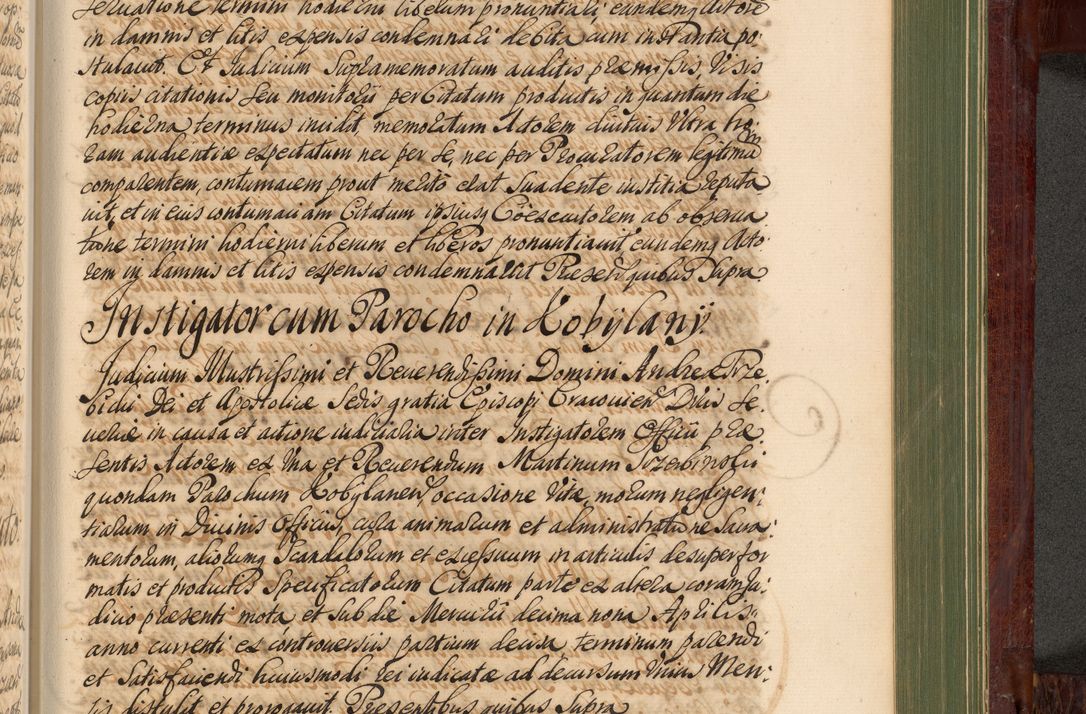 seruatione termini hodierni liberum pronuntiari, eundemq Actore
in damnis et litis expensis condemnari debita cum instantia po:
stulauit. Et Judicium Supramemoratum auditis præmissis, visis
copiis citationis seu monitorii per Citatum productis in quantum die
hodierna terminus incidit, memoratum Actorem diutius Vltra ho:
ram audientiæ expectatum nec per se, nec per Procuratorem legitimũ
comparentem, contumacem prout meritò erat Suadente iustitia reputa
uit, et in eius contumaciam Citatum ipsiusq Coëxecutorem ab obserua
tione termini hodierni liberum et liberos pronuntiauit, eundemq Acto:
rem in damnis et litis expensis condemnauit Presentibus quibus Supra
Instigator cum Parocho in Kobylany.
Judicium Illustrissimi et Reuerendissimi Domini Andreæ Trze:
bicki Dei et Apostolicæ Sedis gratia Episcopi Cracouien Ducis Se:
ueriæ in causa et actione iudicialia inter Instigatorem Officii præ:
sentis Actorem ex Vna et Reuerendum Martinum Trzebinski
quondam Parochum Kobylanen, occasione Vitæ, morum negligen:
tiarum in Diuinis Officiis, cura animarum et administratione Sacra:
mentorum, aliorumq Scandalorum et excessuum in articulis desuper for
matis et productis Specificatorum Citatum parte ex altera coram Ju:
dicio præsenti mota et Sub die Mercurii decima nona Aprilis:
anno currenti ex controuersiis partium decisa, terminum parendi
et Satisfaciendi huiusmodi rei iudicatæ ad decursum Vnius Men:
sis distulit et prorogauit. Presentibus quibus Supra